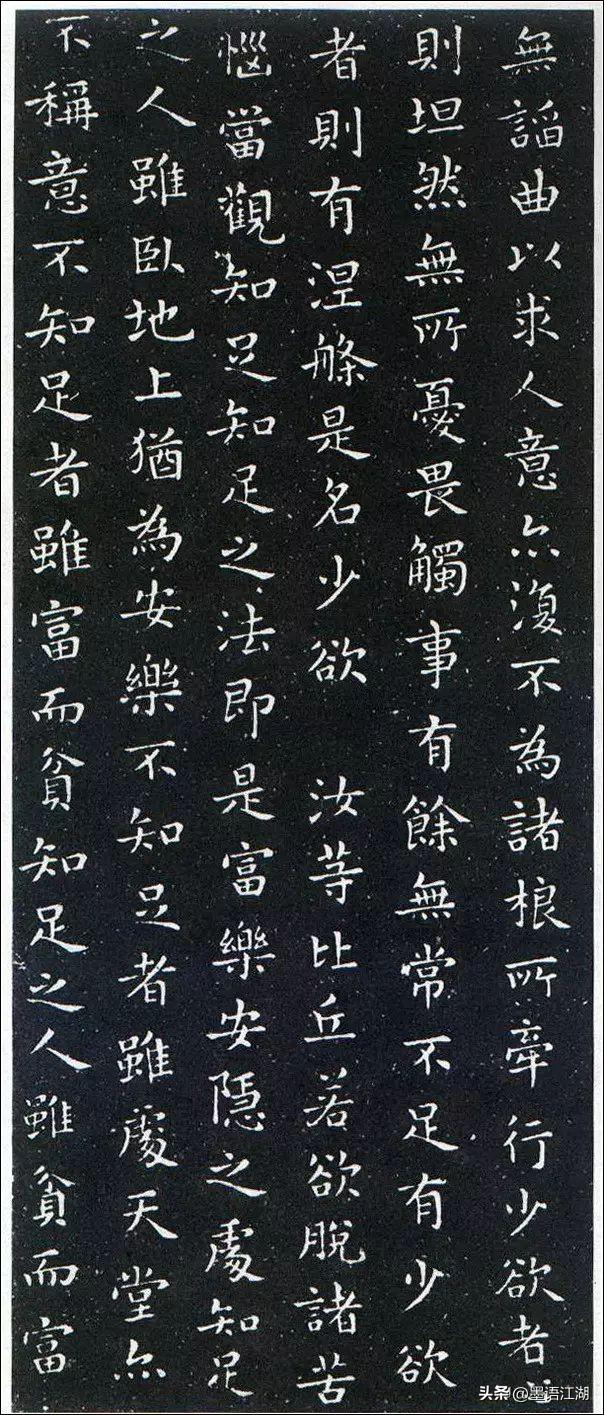 無謟曲以求人意亦復不為諸根所牽行少欲者心
則坦然無所憂畏觸事有餘無常不足有少欲
者則有涅槃是名少欲　汝等比丘若欲脫諸苦
惱當觀知足知足之法即是富樂安隱之處知足
之人雖臥地上猶為安樂不知足者雖處天堂亦
不稱意不知足者雖富而貧知足之人雖貧而富
头条@墨语江湖